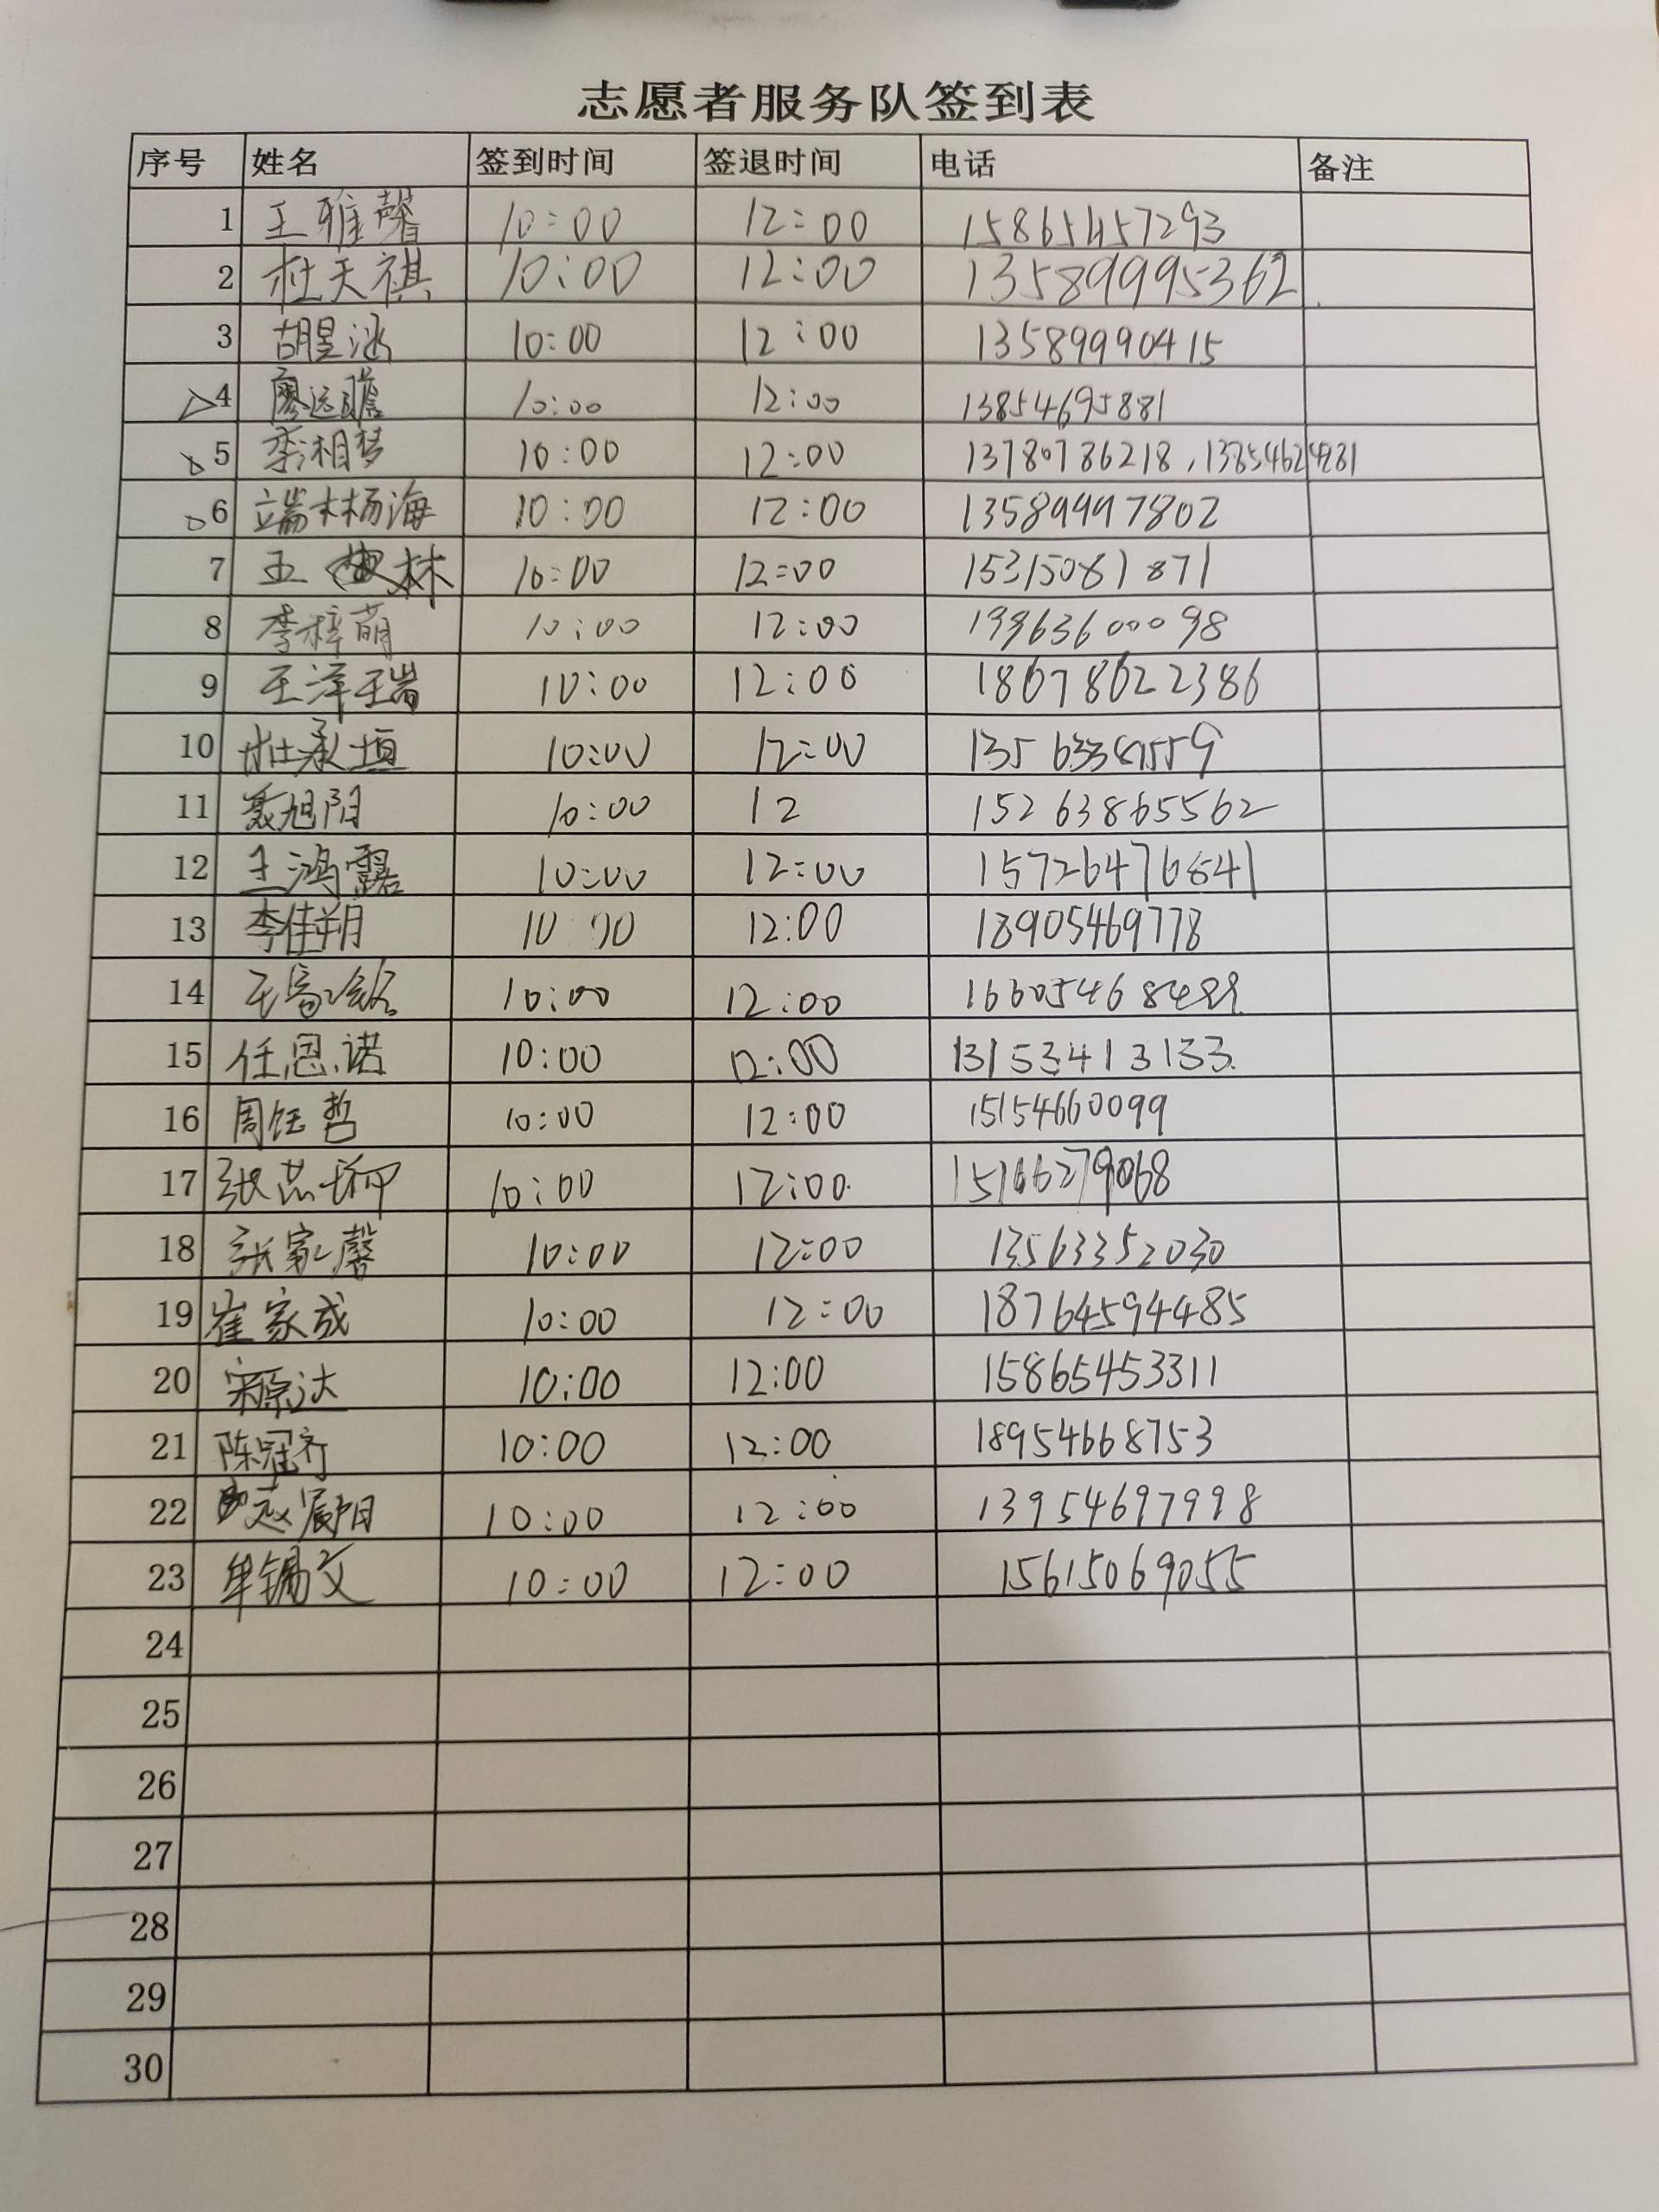 志愿者服务队签到表
序号 姓名 签到时间 签退时间 电话 备注
1 王雅馨 10:00 12:00 15865457293
2 杜天祺 10:00 12:00 13589995362
3 胡昱涵 10:00 12:00 13589990415
4 廖远瞻 10:00 12:00 13854695881
5 李湘梦 10:00 12:00 13780786218,13854624281
6 端林杨海 10:00 12:00 13589997802
7 王 林 10:00 12:00 15315081871
8 李梓萌 10:00 12:00 19963600098
9 王泽瑞 10:00 12:00 18678622386
10 杜承垣 10:00 12:00
11 聂旭阳 10:00 12 15263865562
12 王鸿露 10:00 12:00 15726476841
13 李佳朔 10:00 12:00 18905469778
14 王家铭 10:00 12:00
15 任恩诺 10:00 12:00 13153413133
16 周钰哲 10:00 12:00 15154660099
17 10:00 12:00 15166279068
18 张家馨 10:00 12:00 13563352030
19 崔家成 10:00 12:00 18764594485
20 宋原达 10:00 12:00 15865453311
21 陈冠齐 10:00 12:00 18954668753
22 赵宸阳 10:00 12:00 13954697998
23 牟锡文 10:00 12:00 15615069055
24
25
26
27
28
29
30